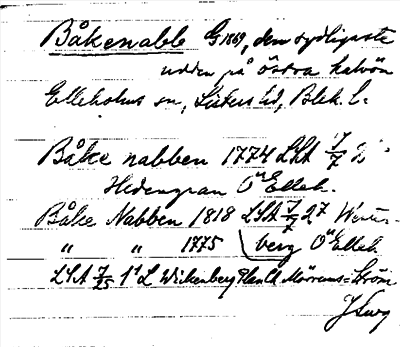 Båkenabb G 1869, den sydligaste
udden på östra halvön
Elleholms sn, Listers hd, Blek. l.
Båke nabben 1774 LSA 7/7 2
Hedengran Ö Elleh.
Båke Nabben 1818 LSA 7/7 27 Wester-
" " 1775 berg Ö Elleh
LSA 7/25 1 L Wickenberg Mörrums-Ström